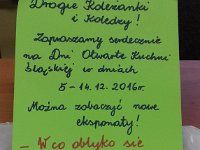 Drogie Koleżanki
i Koledzy!
Zapraszamy serdecznie
na Dni Otwarte Kuchni
Śląskiej w dniach
5-14.12.2016r.
Można zobaczyć nowe
eksponaty!
- W co obłyko się